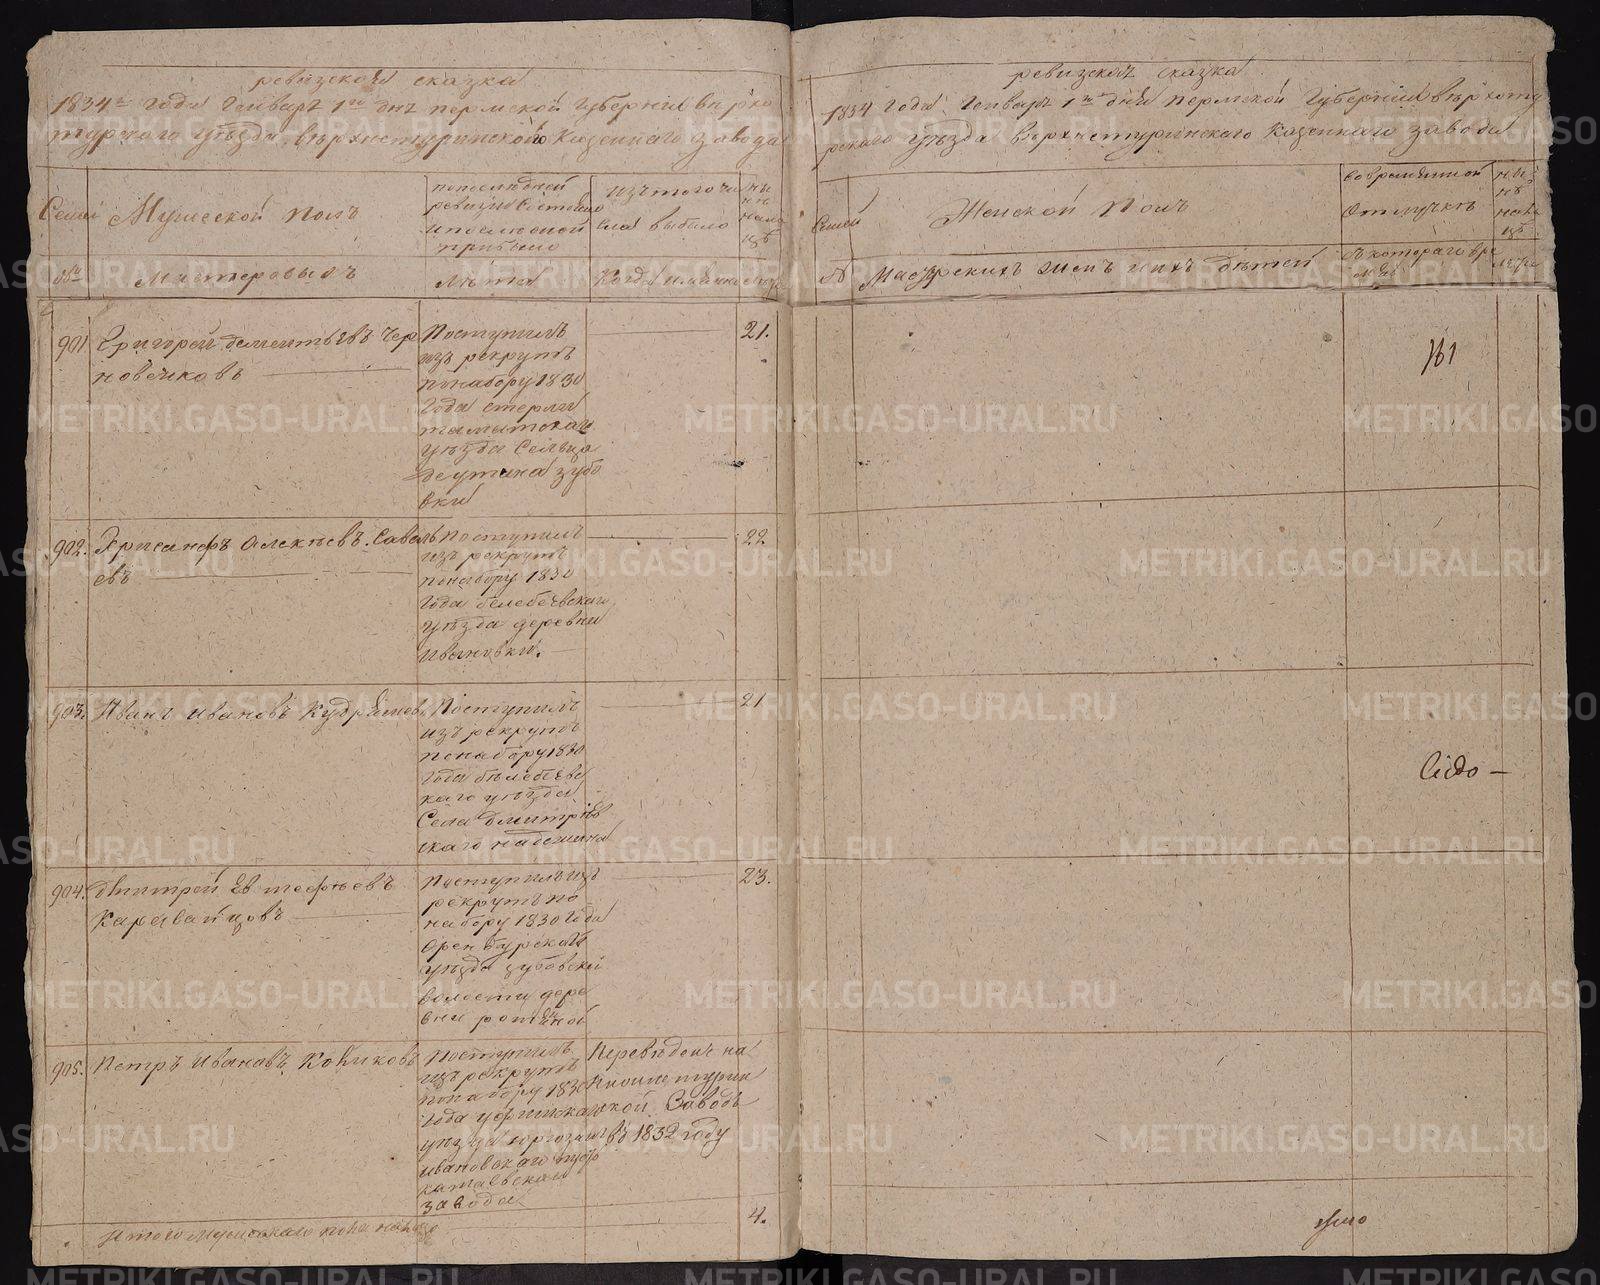 ревизская сказка
1834го года Генваря 1го дня пермской Губернии верхо
турского уезда, верхнетуринского Казеннаго завода
Семьи
Мужеской Полъ
попоследней
ревизии Состояло
ипоследной
прибыло
изътого чи
сла выбыло
ны
не
нали
цо
Мастеровыхъ
Лета
Когда имянно
Лета
901
Григорей дементьевъ Чер
новсково
Поступилъ
изъ рекрутъ
понабору 1830
Года стерли
таматскаго
уезда Сельца
зубо
вки
21.
902.
Хрисанфъ Алексеевъ. Савель
евъ
Поступилъ
изъ рекрутъ
понабору 1830
Года белебеевскаго
уезда деревни
Ивановки.
22
903.
Иванъ Ивановъ Кудряшевъ
Поступилъ
изъ рекрутъ
понабору 1830
Года белебеевс
каго уезда
Села дмитріев
скаго надеждина
21
904.
Дмитрей Евстефеевъ
Каравайцовъ
Поступилъ изъ
рекрутъ по
набору 1830 Года
Оренбурской
уезда зубовской
волости дере
вни
23.
905.
Петръ Ивановъ
Поступилъ
изъ рекрутъ
понабору 1830
Года уфимска
уезда
ивановскаго
катаевскаго
завода
Переведенъ на
Нижнетурин
ской Заводъ
въ 1832 году
Итого мужескаго пола налицо
4.
ревизская сказка
1834 Года Генваря 1го дня Пермской Губернии верхоту
рскаго уезда верхнетуринскаго Казеннаго завода
Семьи
Женской Полъ
вовременной
Отлучке
ны
не
нали
цо
Мастерскихъ женъ ихъ детей
съкотораго вре
мени
Лета
161
METRIKI.GASO-URAL.RU